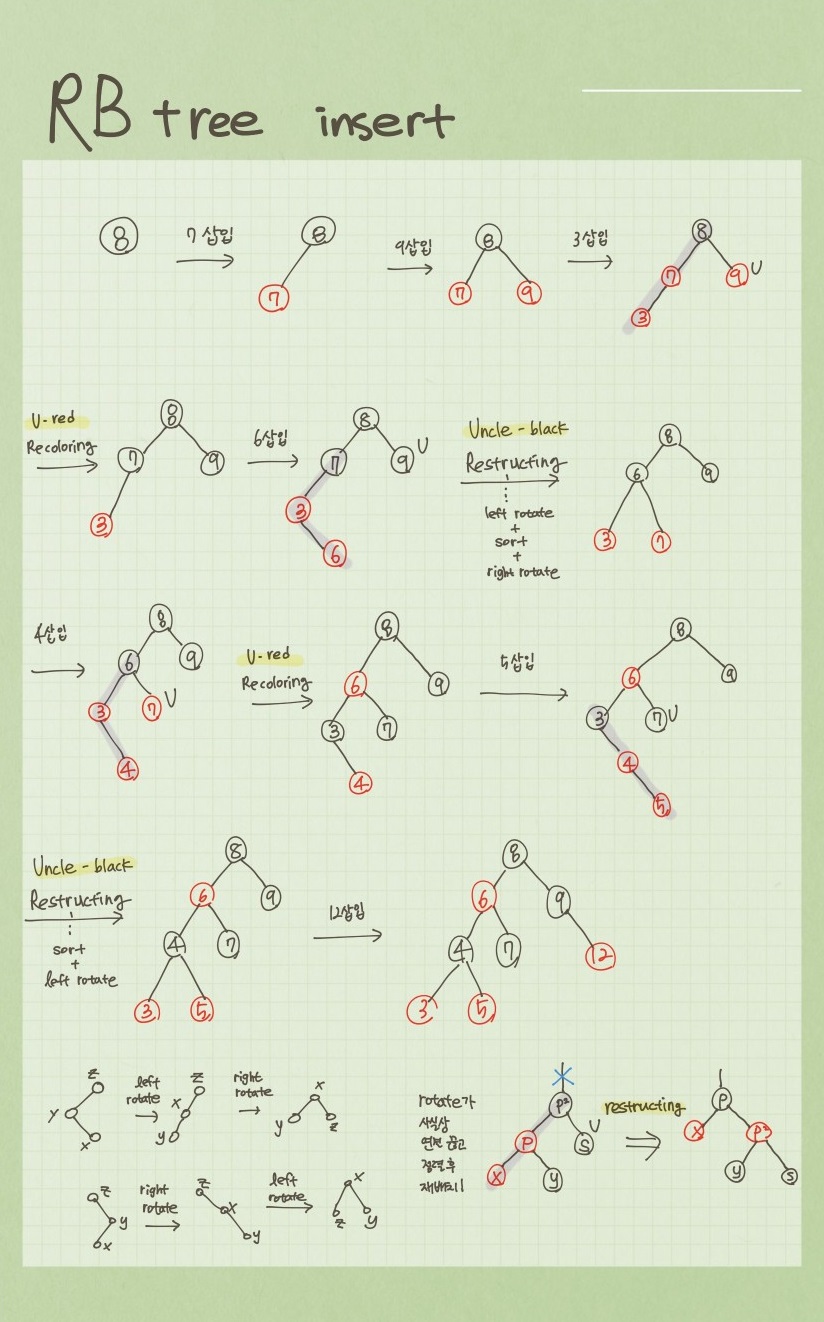 RB tree insert
8
7삽입
8
7
9삽입
8
7
9
3삽입
8
7
9
U
3
U-red
Recoloring
8
7
9
3
6삽입
8
7
9
U
3
6
Uncle-black
Restructing
left rotate
+
sort
+
right rotate
8
6
9
3
7
4삽입
8
6
9
3
7
U
4
U-red
Recoloring
8
6
9
3
7
4
5삽입
8
6
9
3
7
U
4
5
Uncle-black
Restructing
sort
+
left rotate
8
6
9
4
7
3
5
12삽입
8
6
9
4
7
12
3
5
z
y
x
left
rotate
z
x
y
right
rotate
x
y
z
z
y
x
right
rotate
z
x
y
left
rotate
x
z
y
rotate가
사실상
연결 끊고
정렬 후
재배치!
p²
U
p
s
x
y
restructing
p
x
p²
y
s